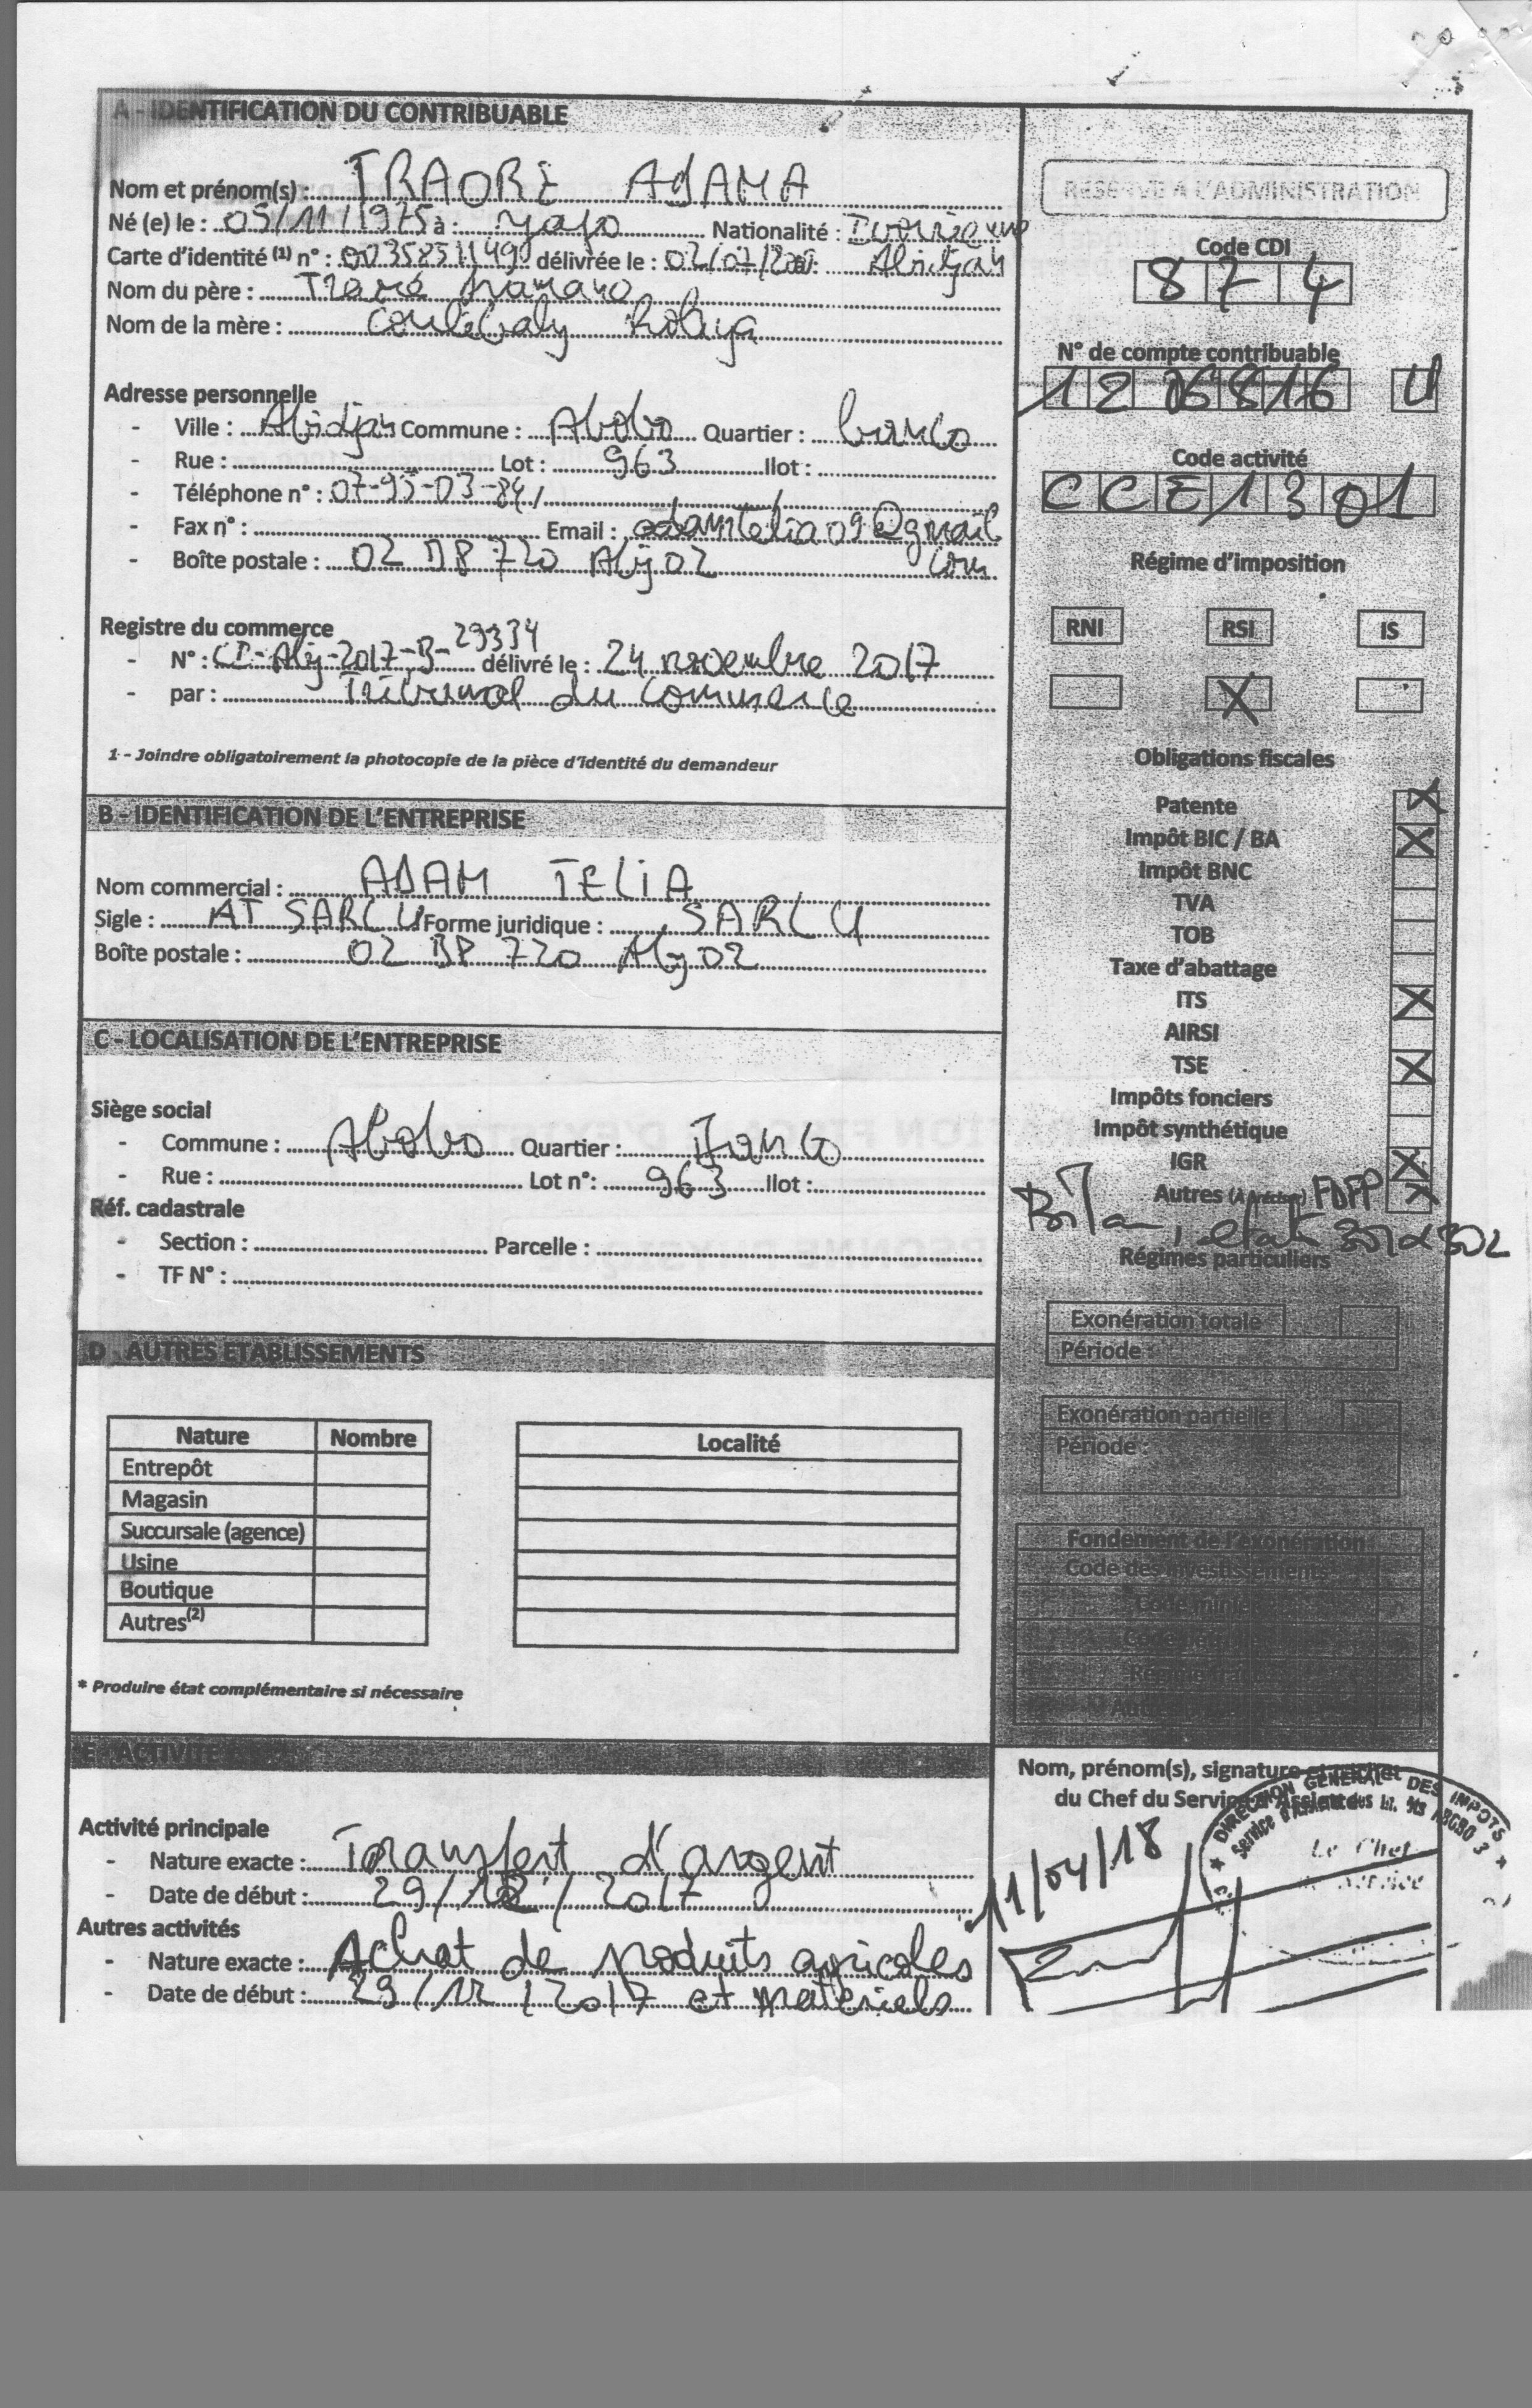 A - IDENTIFICATION DU CONTRIBUABLE
Nom et prénom(s) : TRAORE ADAMA
Né (e) le : 05/11/1975 à : Nationalité :
Carte d'identité (1) n° : délivrée le : 02/07/ Abidjan
Nom du père :
Nom de la mère :
Adresse personnelle
- Ville : Abidjan Commune : Abobo Quartier : banco
- Rue : Lot : 963 Ilot :
- Téléphone n° : 07-95-03-84/
- Fax n° : Email : adamtelia09@gmail
com
- Boîte postale : 02 BP 720 Abj 02
Registre du commerce
- N° : CI-Abj-2017-B-29334 délivré le : 24 novembre 2017
- par : Tribunal du commerce
1 - Joindre obligatoirement la photocopie de la pièce d'identité du demandeur
B - IDENTIFICATION DE L'ENTREPRISE
Nom commercial : ADAM TELIA
Sigle : AT SARL U Forme juridique : SARL U
Boîte postale : 02 BP 720 Abj 02
C - LOCALISATION DE L'ENTREPRISE
Siège social
- Commune : Abobo Quartier : Banco
- Rue : Lot n°: 963 Ilot :
Réf. cadastrale
- Section : Parcelle :
- TF N° :
D - AUTRES ETABLISSEMENTS
Nature Nombre Localité
Entrepôt
Magasin
Succursale (agence)
Usine
Boutique
Autres(2)
* Produire état complémentaire si nécessaire
E - ACTIVITE
Activité principale
- Nature exacte : Transfert d'argent
- Date de début : 29/12/2017
Autres activités
- Nature exacte : Achat de produits agricoles
- Date de début : 29/12/2017 et matériels
RESERVE A L'ADMINISTRATION
Code CDI
8 7 4
N° de compte contribuable
U
Code activité
C C E 1 3 0 1
Régime d'imposition
RNI RSI IS
X
Obligations fiscales
Patente X
Impôt BIC / BA X
Impôt BNC
TVA
TOB
Taxe d'abattage
ITS X
AIRSI
TSE X
Impôts fonciers
Impôt synthétique
IGR X
Autres (A préciser) FDFP X
Bilan, etats 301 et 302
Régimes particuliers
Exonération totale
Période :
Exonération partielle
Période :
Fondement de l'exonération
Code des investissements
Code minier
Nom, prénom(s), signature et cachet
du Chef du Service d'Assiette
11/04/18
DIRECTION GENERALE DES IMPOTS
Le Chef
de Service